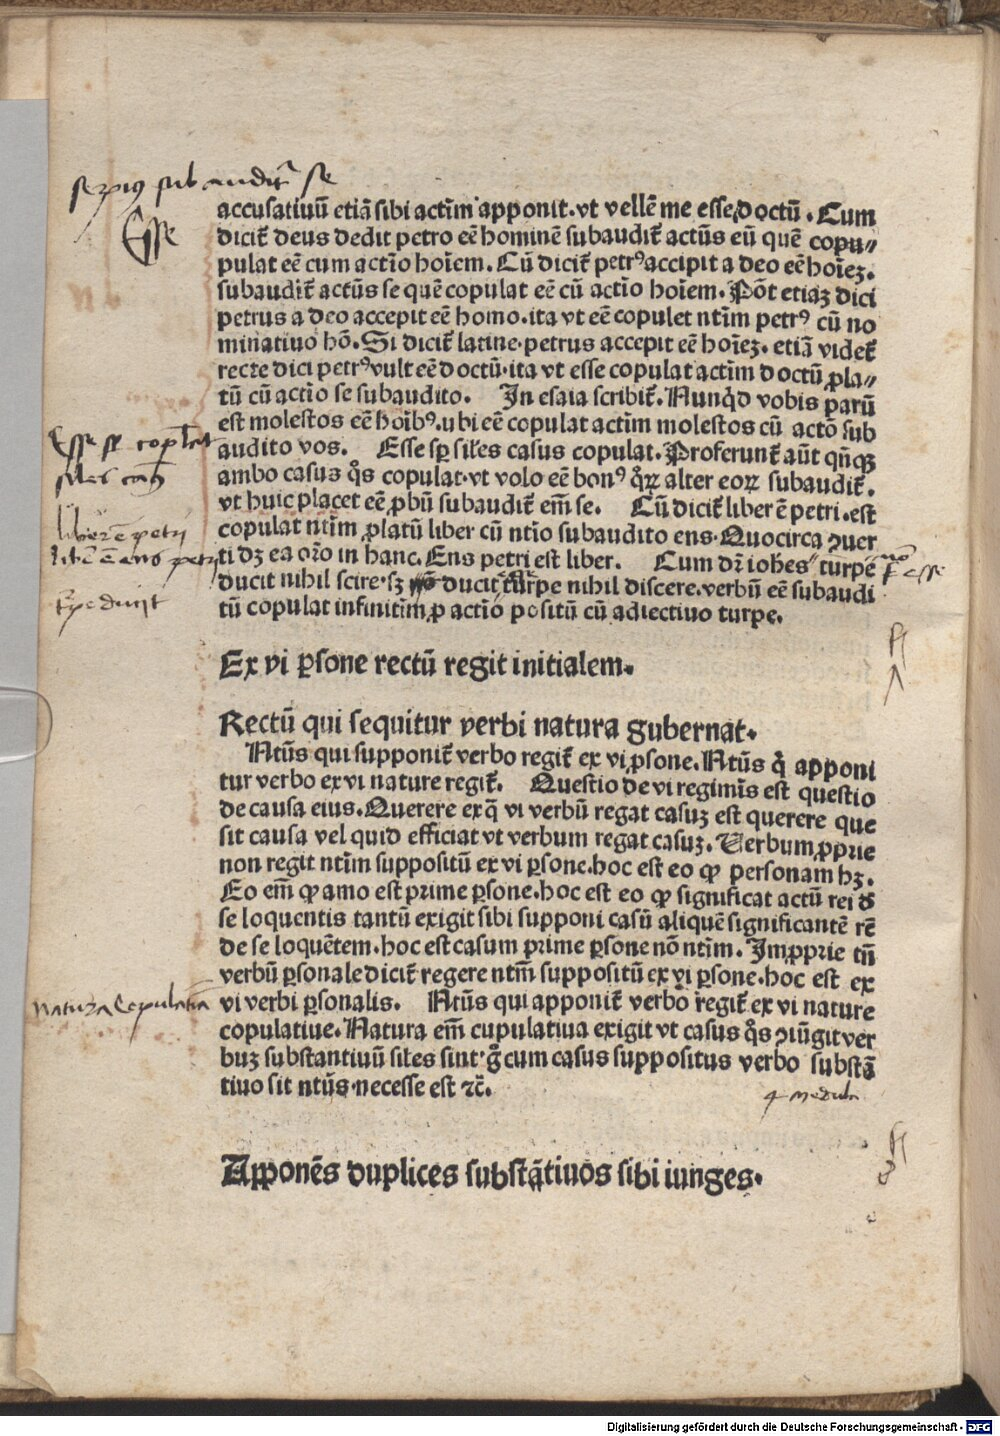 sepius subaudit se
Esse
accusatiuū etiā sibi actim̄ apponit. vt vellē me esse doctū. Cum
dicit̃ deus dedit petro eē hominē subaudit̃ actūs eū quē copu⸗
pulat eē cum actīo hoīem. Cū dicit̃ petrꝰ accipit a deo eē hoīeꝫ.
subaudit̃ actūs se quē copulat eē cū actīo hoīem. Pōt etiaꝫ dici
petrus a deo accepit eē homo. ita vt eē copulet ntīm petrꝰ cū no
minatiuo hō. Si dicit̃ latine. petrus accepit eē hoīeꝫ. etiā videt̃
recte dici petrꝰ vult eē doctū. ita vt esse copulat actīm doctū ꝓla⸗
tū cū actīo se subaudito. In esaia scribit̃. Nunqͥd vobis parū
est molestos eē hoībꝰ. ubi eē copulat actīm molestos cū actō sub
audito vos. Esse sꝑ siles casus copulat. Proferunt̃ aūt qn̄qꝫ
ambo casus q̄s copulat. vt volo eē bonꝰ qͦꝝ alter eoꝝ subaudit̃.
vt huic placet eē ꝓbū subaudit̃ em̄ se. Cū dicit̃ liber ē petri. est
copulat ntīm ꝓlatū liber cū ntīo subaudito ens. Quocirca ꝯuer
ti dꝫ ea oro in hanc. Ens petri est liber. Cum dr̄ iohes turpe
ducit nihil scire. sꝫ ducit turpe nihil discere. verbū eē subaudi
tū copulat infinitīm ꝓ actīo positū cū adiectiuo turpe.
liber ē petri
liber ē ens petri
esse
Ex vi ꝑsone rectū regit initialem.
Rectū qui sequitur verbi natura gubernat.
Ntūs qui supponit̃ verbo regit̃ ex vi ꝑsone. Ntūs qͥ apponi
tur verbo ex vi nature regit̃. Questio de vi regimīs est questio
de causa eius. Querere ex q̄ vi verbū regat casuꝫ est querere que
sit causa vel quid efficiat vt verbum regat casuꝫ. Verbum ꝓprie
non regit ntīm suppositū ex vi ꝑsone. hoc est eo ꝙ personam hꝫ.
Eo em̄ ꝙ amo est prime ꝑsone. hoc est eo ꝙ significat actū rei d̄
se loquentis tantū exigit sibi supponi casū aliquē significantē rē
de se loquētem. hoc est casum prime ꝑsone nō ntīm. Imꝓprie tn̄
verbū ꝑsonale dicit̃ regere ntm̄ suppositū ex vi ꝑsone. hoc est ex
vi verbi ꝑsonalis. Ntūs qui apponit̃ verbo regit̃ ex vi nature
natura copulatiua
copulatiue. Natura em̄ cupulatiua exigit vt casus q̄s ꝯiūgit ver
buꝫ substantiuū siles sint. gͦ cum casus suppositus verbo substā
tiuo sit ntūs. necesse est ⁊c̄.
Apponēs duplices substātiuos sibi iunges.